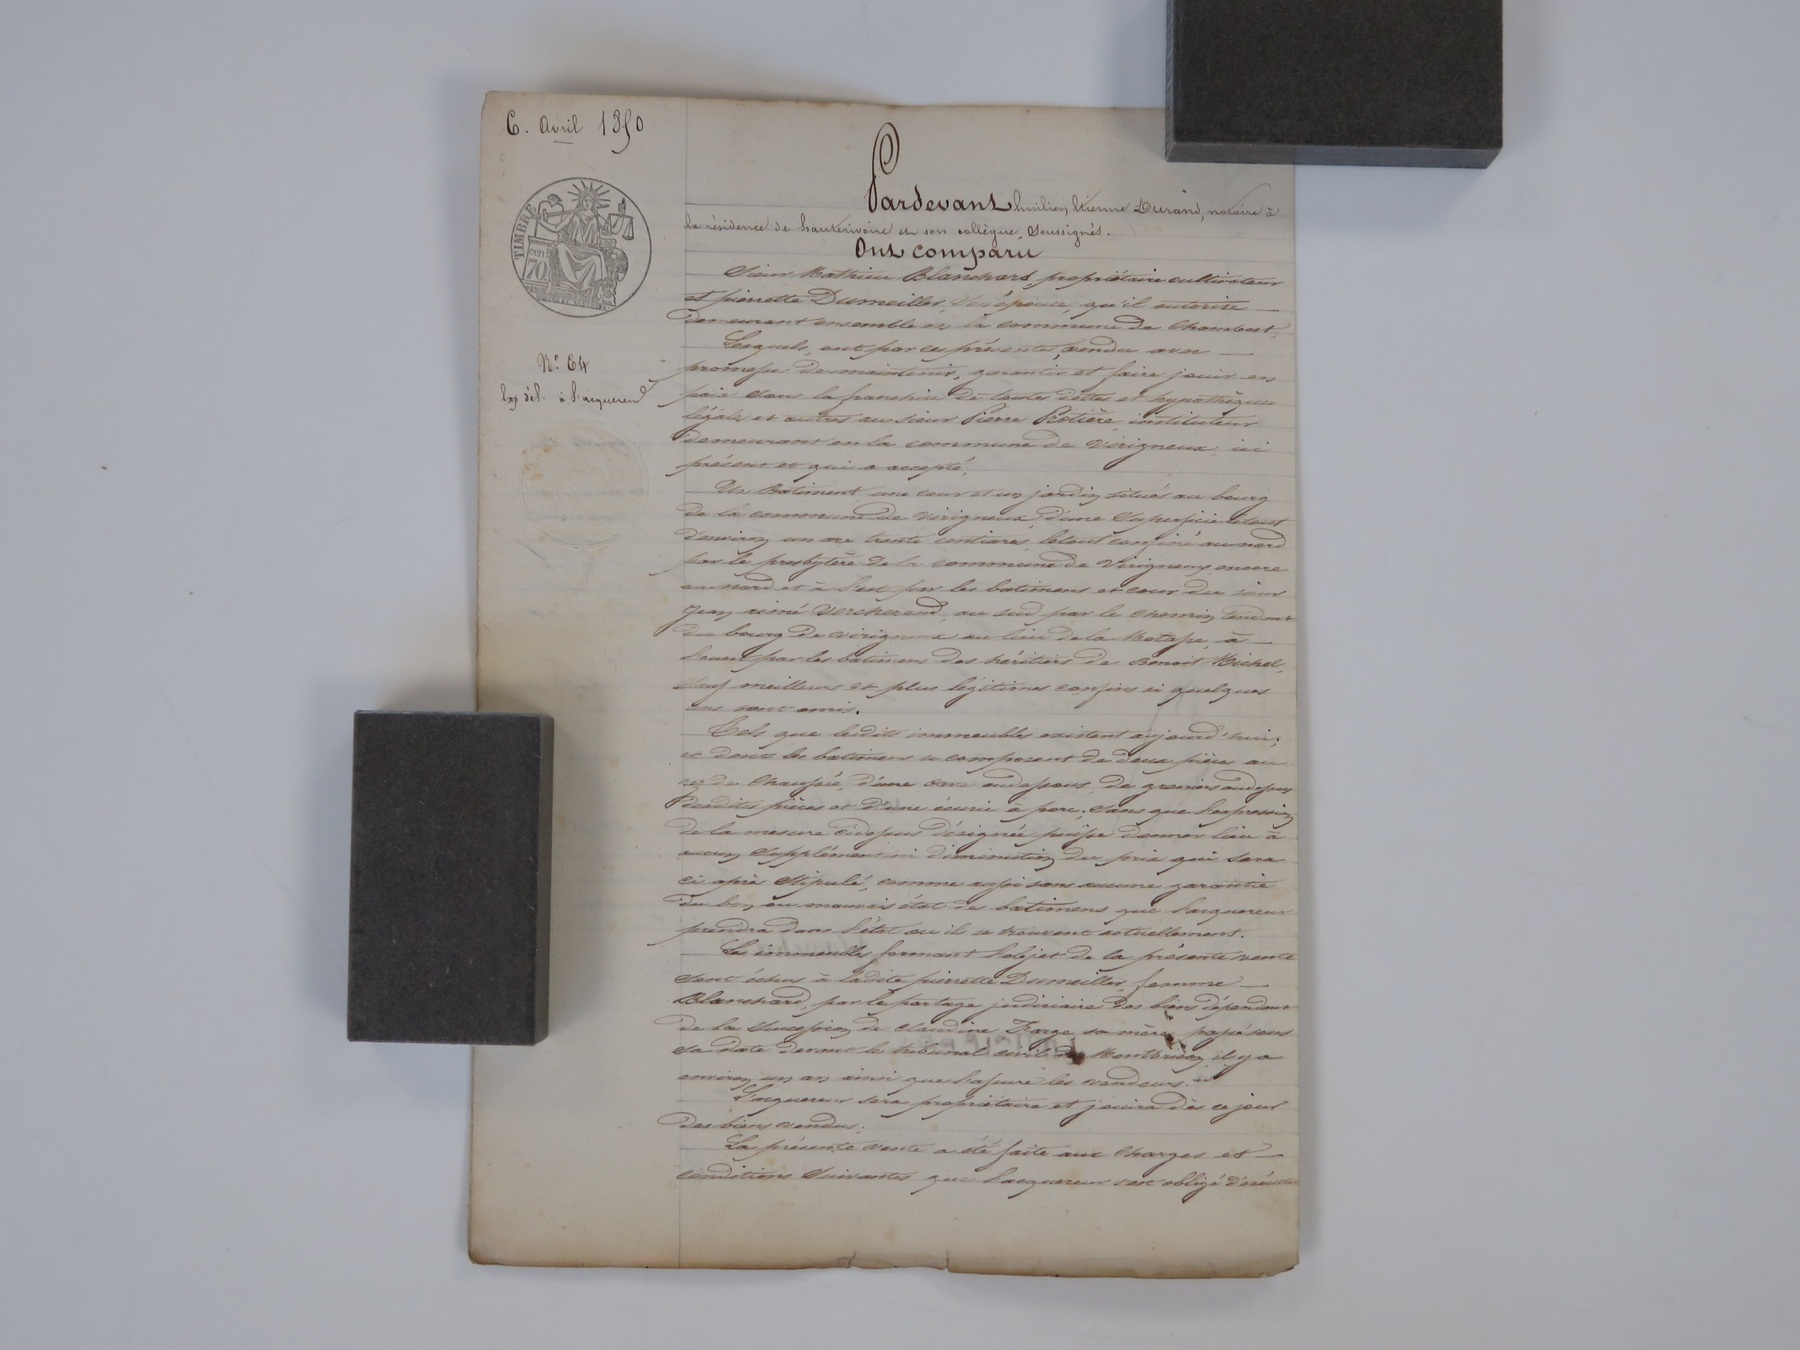 6. Avril 1850
TIMBRE
70
Nº 64
Exp dél. à l'acquereur
Pardevant Emilien Etienne Durand, notaire à
la résidence de hauterivoire et son collègue, soussignés.
Ont comparu
Sieur Mathieu Blanchard, propriétaire cultivateur
et pierrette Dumeiller, son épouse, qu'il autorise
demeurant ensemble en la commune de Chambost,
Lesquels, ont par ces présentes, vendu avec
promesse de maintenir, garantir et faire jouir en
paix sous la franchise de toutes dettes et hypothèques
légales et autres au sieur Pierre Rotière, instituteur
demeurant en la commune de Virigneux, ici
présent et qui a accepté,
Un Batiment, une cour et un jardin situés au bourg
de la commune de virigneux, d'une superficie
d'environ un are trente centiares, le tout confiné au nord
par le presbytère de la commune de Virigneux encore
au nord et à l'est par les batimens et cour du sieur
Jean aimé Vercherand, au sud par le chemin tendant
du bourg de virigneux au lieu de la, à
l'ouest par les batimens des héritiers de Benoit Michel,
sauf meilleurs et plus légitimes confins si quelques
uns sont omis.
Tels que lesdits immeubles existent aujourd'hui;
et dont les batimens se composent de deux pièces au
rez de chaussée, d'une cave audessous, de greniers audessus
desdites pièces et d'une écurie à porc; sans que l'expression
de la mesure cidessus désignée puisse donner lieu à
aucun supplément ni diminution du prix qui sera
ci après stipulé, comme aussi sans aucune garantie
du bon ou mauvais état des batimens que l'acquereur
prendra dans l'état ou il se trouvent actuellement.
Les immeubles formant l'objet de la présente vente
sont échus à ladite pierrette Dumeiller, femme
Blanchard, par le partage judiciaire des biens dépendant
de la succession de Claudine Farge sa mère, passé sous
sa date devant le tribunal civil de Montbrison il y a
environ un an ainsi que l'assure les vendeurs.
L'acquereur sera propriétaire et jouira dès ce jour
des biens vendus;
La présente vente a été faite aux charges et
conditions suivantes que l'acquereur sera obligé d'exécuter